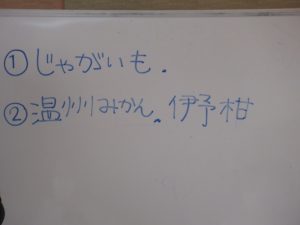 ①じゃがいも.
②温州みかん. 伊予柑